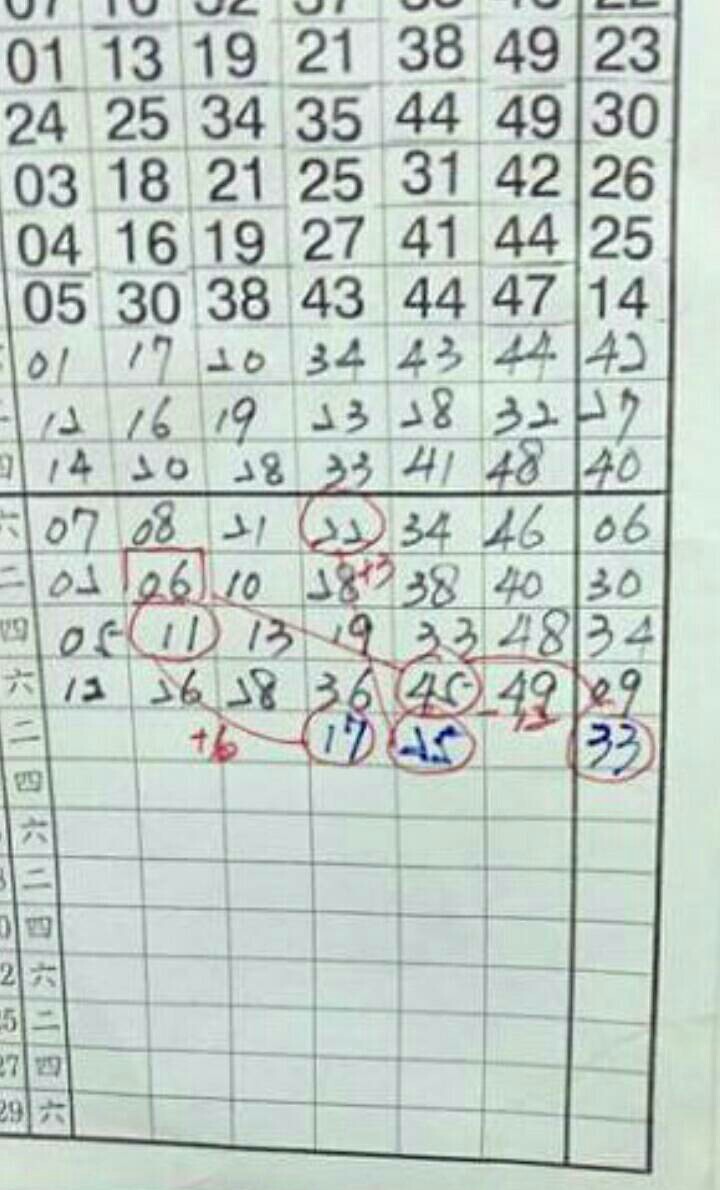 01 13 19 21 38 49 23
24 25 34 35 44 49 30
03 18 21 25 31 42 26
04 16 19 27 41 44 25
05 30 38 43 44 47 14
01 17 20 34 43 44 42
12 16 19 23 28 32 27
14 20 28 33 41 48 40
六 07 08 21 22 34 46 06
二 02 06 10 28 +3 38 40 30
四 05 11 13 19 33 48 34
六 12 26 28 36 45 49 09
二 +6 17 25 33
四
六
二
四
六
二
27 四
29 六